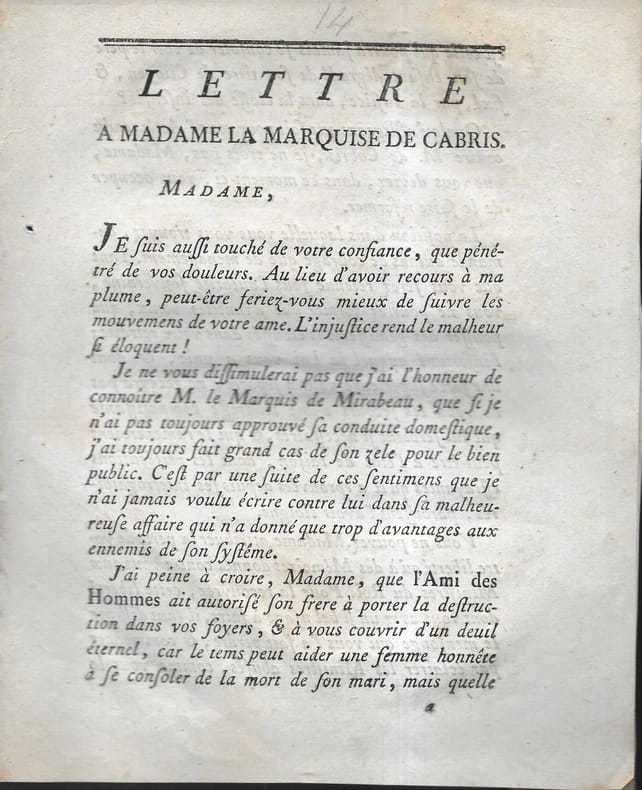 14
LETTRE
A MADAME LA MARQUISE DE CABRIS.
MADAME,
JE ſuis auſſi touché de votre confiance, que péné-
tré de vos douleurs. Au lieu d'avoir recours à ma
plume, peut-être feriez-vous mieux de ſuivre les
mouvemens de votre ame. L'injuſtice rend le malheur
ſi éloquent !
Je ne vous diſſimulerai pas que j'ai l'honneur de
connoître M. le Marquis de Mirabeau, que ſi je
n'ai pas toujours approuvé ſa conduite domeſtique,
j'ai toujours fait grand cas de ſon zele pour le bien
public. C'eſt par une ſuite de ces ſentimens que je
n'ai jamais voulu écrire contre lui dans ſa malheu-
reuſe affaire qui n'a donné que trop d'avantages aux
ennemis de ſon ſyſtême.
J'ai peine à croire, Madame, que l'Ami des
Hommes ait autoriſé ſon frere à porter la deſtruc-
tion dans vos foyers, & à vous couvrir d'un deuil
éternel, car le tems peut aider une femme honnête
à ſe conſoler de la mort de ſon mari, mais quelle
a